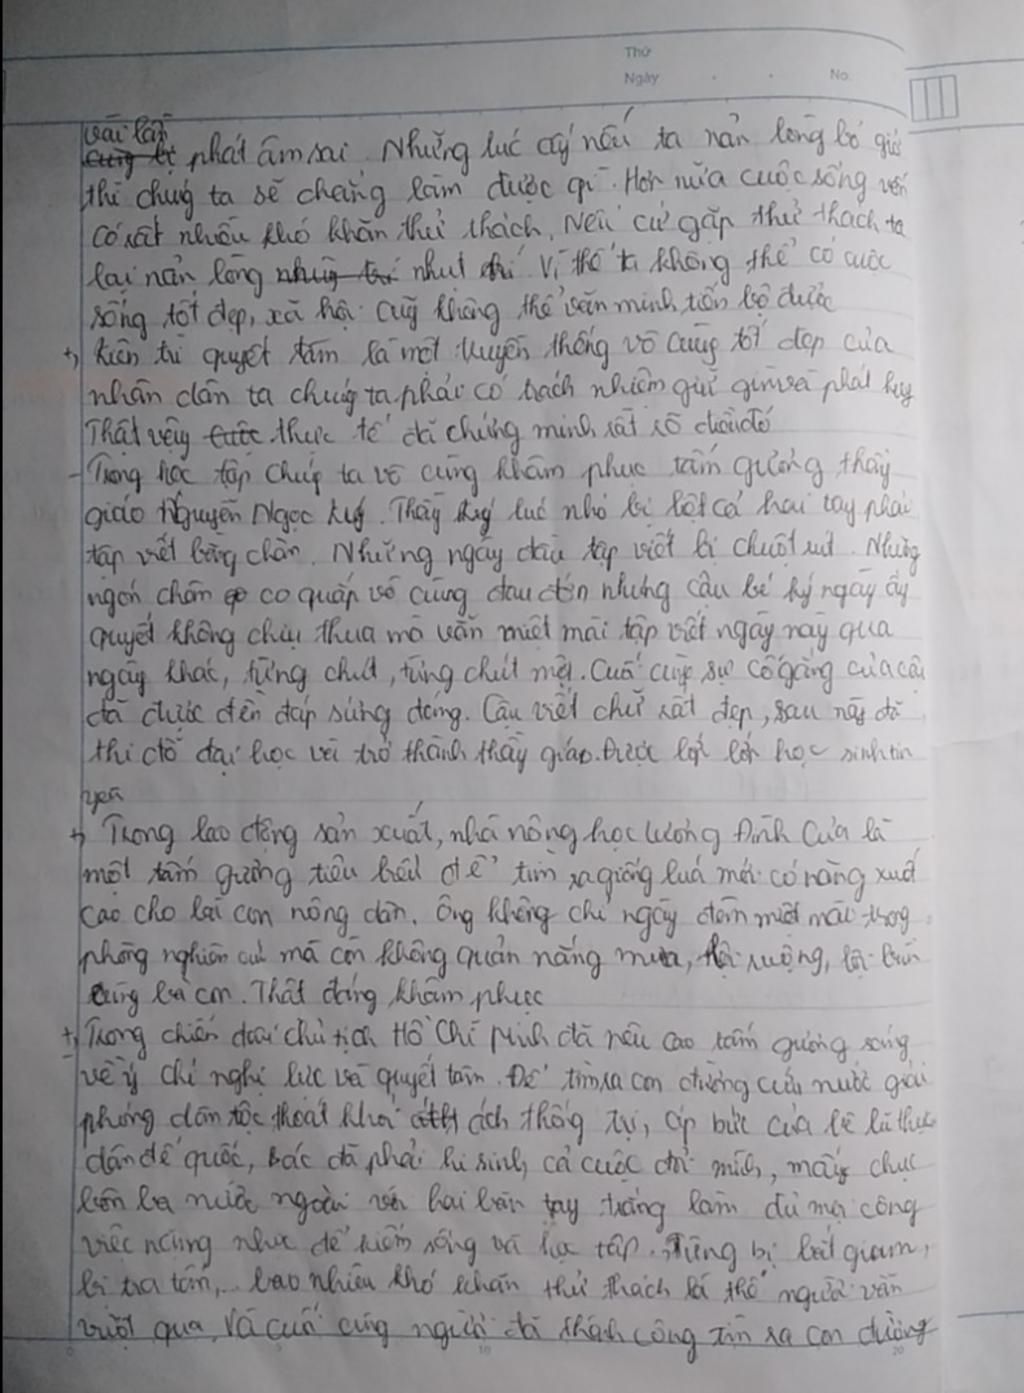 Thứ
Ngày . . No.
vài lần
phát âm sai. Những lúc ấy nếu ta nản lòng bỏ giở
thì chúng ta sẽ chẳng làm được gì. Hơn nữa cuộc sống vốn
có rất nhiều khó khăn thử thách. Nếu cứ gặp thử thách ta
lại nản lòng như thế vì thế ta không thể có cuộc
sống tốt đẹp, xã hội cũng không thể văn minh, tiến bộ được
+, kiên trì quyết tâm là một truyền thống vô cùng tốt đẹp của
nhân dân ta chúng ta phải có trách nhiệm giữ gìn và phát huy
Thật vậy thực tế đã chứng minh rất rõ điều đó
- Trong học tập chúng ta vô cùng khâm phục tấm gương thầy
giáo Nguyễn Ngọc Ký. Thầy Ký lúc nhỏ bị liệt cả hai tay phải
tập viết bằng chân. Những ngày đầu tập viết bị chuột rút. Những
ngón chân co quắp vô cùng đau đớn nhưng cậu bé ký ngày ấy
quyết không chịu thua mà vẫn miệt mài tập viết ngày này qua
ngày khác, từng chút, từng chút một. Cuối cùng sự cố gắng của cậu
đã được đền đáp xứng đáng. Cậu viết chữ rất đẹp, sau này đã
thi đỗ đại học và trở thành thầy giáo. Được lớp lớp học sinh tin
yêu
+, Trong lao động sản xuất, nhà nông học Lương Đình Của là
một tấm gương tiêu biểu để tìm ra giống lúa mới có năng xuất
cao cho bà con nông dân. Ông không chỉ ngày đêm miệt mài trong
phòng nghiên cứu mà còn không quản nắng mưa, lội ruộng, lội bùn
cùng bà con. Thật đáng khâm phục
+, Trong chiến đấu chủ tịch Hồ Chí Minh đã nêu cao tấm gương sáng
về ý chí nghị lực và quyết tâm. Để tìm ra con đường cứu nước giải
phóng dân tộc thoát khỏi ách thống trị, áp bức của bè lũ thực
dân đế quốc, Bác đã phải hi sinh cả cuộc đời mình, mấy chục
bôn ba nước ngoài với hai bàn tay trắng làm đủ mọi công
việc nặng nhọc để kiếm sống và học tập. Từng bị bắt giam,
bị tra tấn,... bao nhiêu khó khăn thử thách là thế người vẫn
vượt qua. Và cuối cùng người đã thành công tìm ra con đường
0 5 10 20